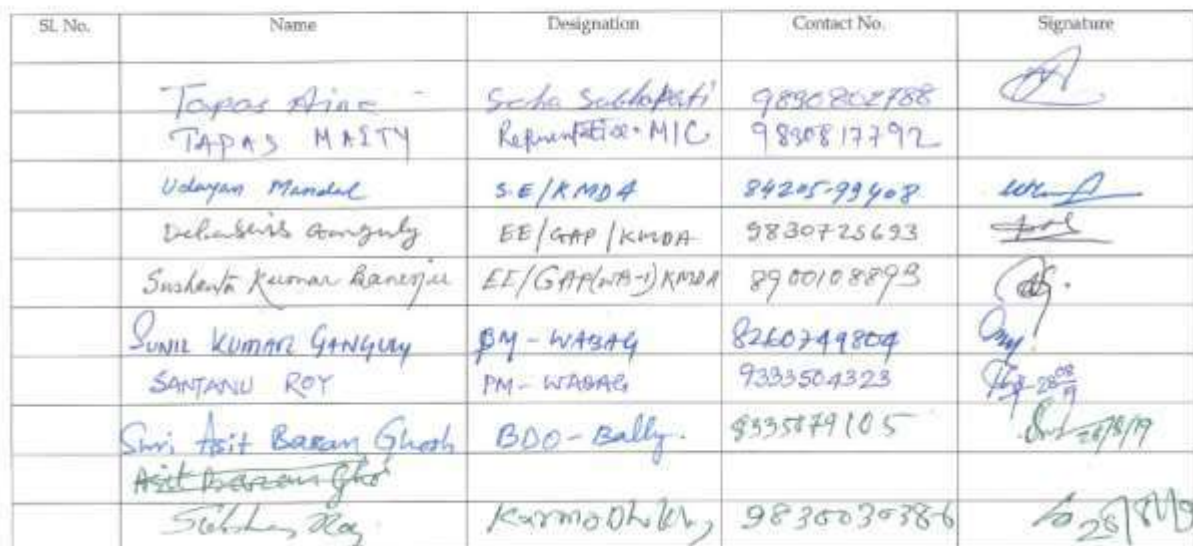 Sl. No. Name Designation Contact No. Signature
Tapas Aine - Saha Sabhapati 9830802788
TAPAS MAITY Representative - MIC 9830817792
Udayan Mandal S.E/KMDA 84205-99408
Debasis Ganguly EE/GAP/KMDA 9830725693
Sushanta Kumar Banerjee EE/GAP(WB-1)KMDA 8900108893
SUNIL KUMAR GANGULY BM - WABAG 8260749804
SANTANU ROY PM - WABAG 9333504323 28/08/19
Shri Asit Baran Ghosh BDO - Bally. 8335079105 28/8/19
Asit Baran Gho
Roy 9830030386 28/8/19